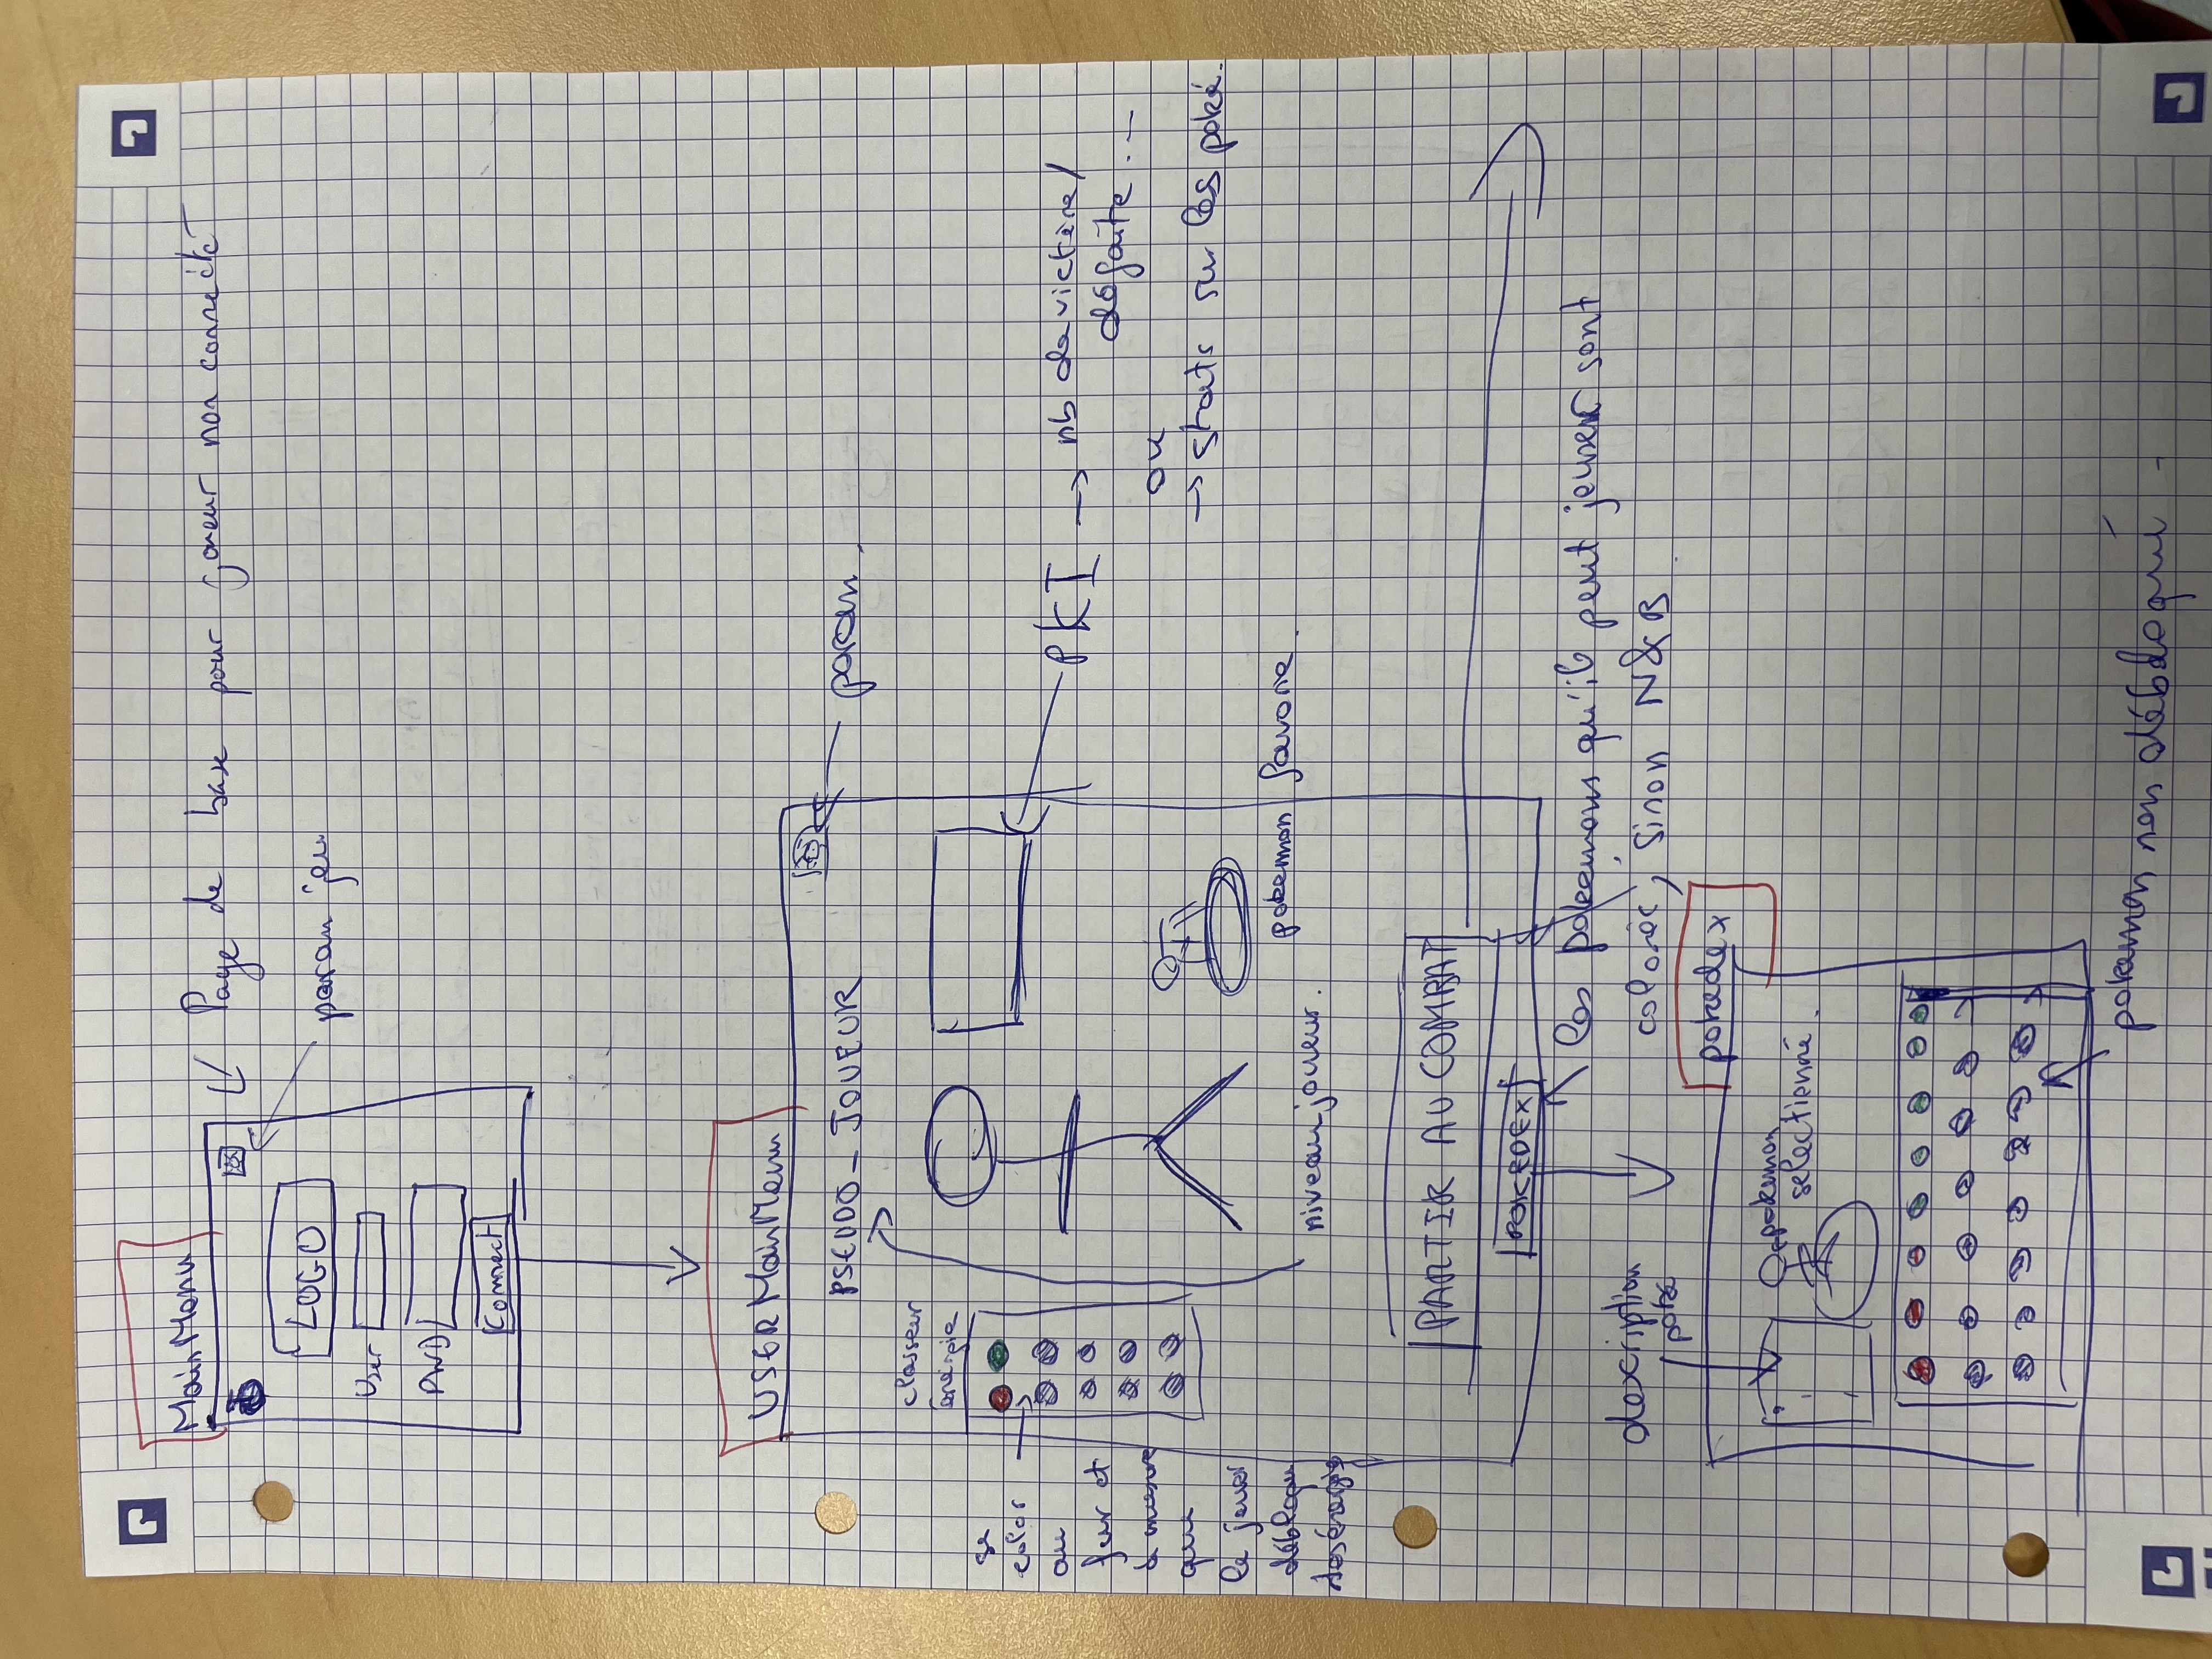 MainMenu
Page de base pour joueur non connecté
LOGO
param jeu
User
PWD
Connect
USERMainMenu
PSEUDO_JOUEUR
param.
classeur
énergie
se
color
au
fur et
à mesure
que
le joueur
débloque
les énergie
PKI → nb de victoire/
défaite...
ou
→ stats sur les poké.
pokemon favorie.
niveau joueur.
PARTIR AU COMBAT
POKEDEX
les pokemons qu'il peut jouer sont
colorés, sinon N&B
description
poké
pokedex
pokemon
selectionné.
pokemon non débloqué.